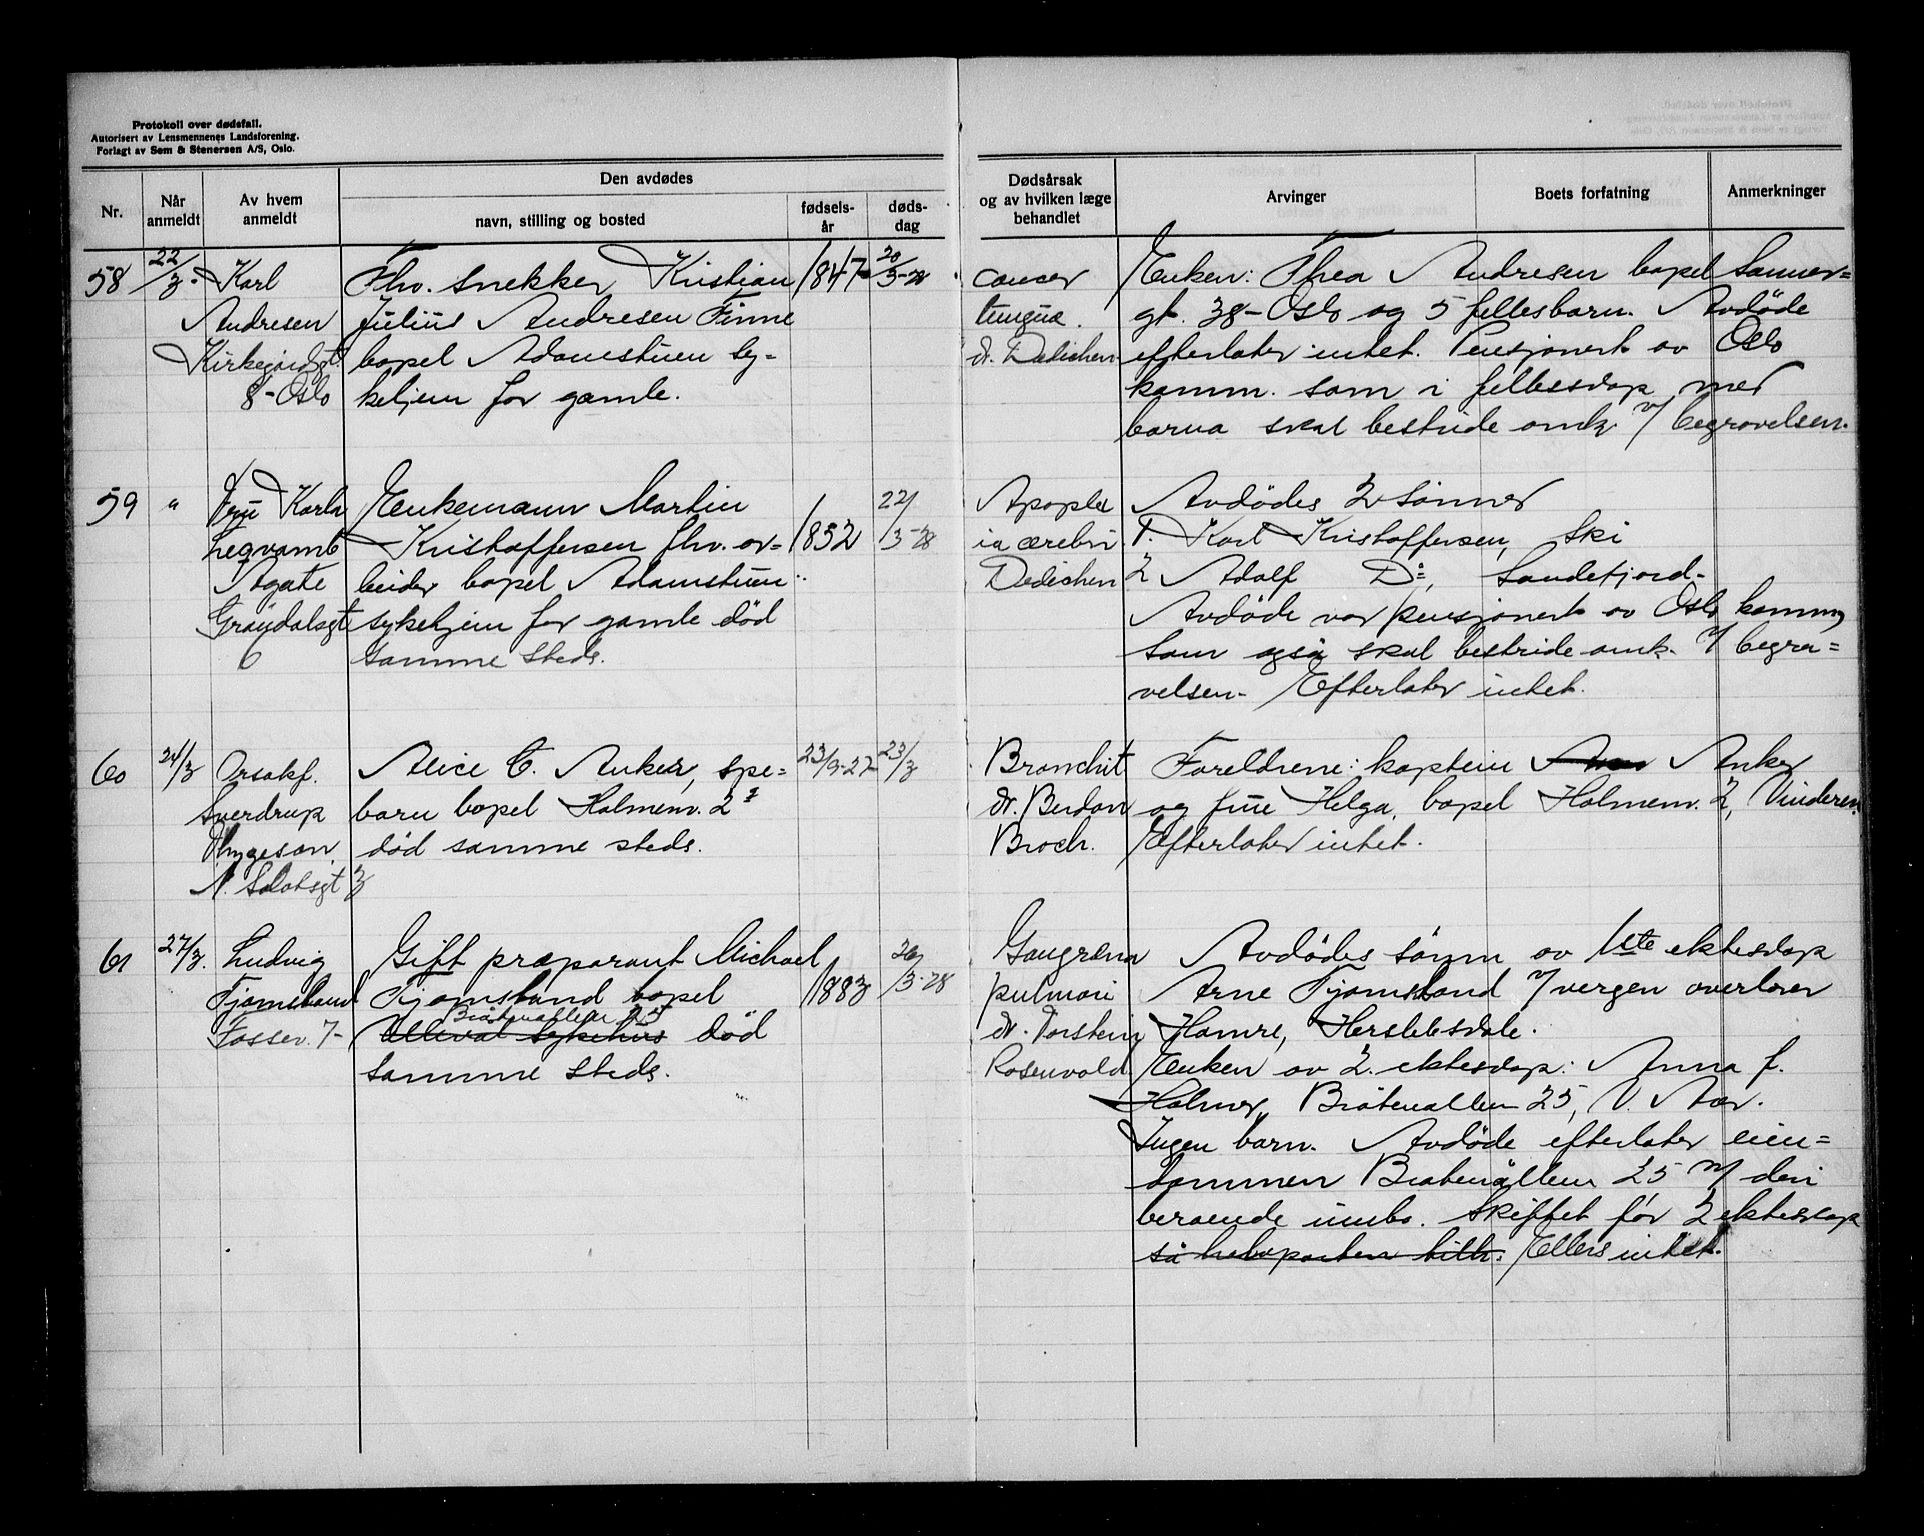 Protokoll over dødsfall.
Autorisert av Lensmennenes Landsforening.
Forlagt av Sem & Stenersen A/S, Oslo.
Nr.
Når anmeldt
Av hvem anmeldt
Den avdødes
navn, stilling og bosted
fødsels-år
døds-dag
Dødsårsak
og av hvilken læge
behandlet
Arvinger
Boets forfatning
Anmerkninger
58
22/3
Karl
Andresen
Kirkegårdsgt.
8 - Oslo
Fhv. snekker Kristian
Julius Andresen Finne
bopel Adamstuen sy=
kehjem for gamle.
1847
20/3-28
cancer
lingua.
dr. Dedichen
Enken: Thea Andresen bopel Sanner=
gt. 38 - Oslo og 5 fellesbarn. Avdöde
efterlater intet. Pensjonert av Oslo
komm. som i fellesskap med
barna skal bestride omk. v/ begravelsen.
59
"
Fru Karla
Legvamb
Agate
Gröndalsgt
6
Enkemann Martin
Kristoffersen fhv. ar=
beider bopel Adamstuen
sykehjem for gamle död
samme steds.
1852
22/3-28
Apoplex
ia cerebri
Dedichen
Avdödes 2 sönner
1. Karl Kristoffersen, Ski
2 Adolf Do, Sandefjord.
Avdöde var pensjonert av Oslo komm,
som også skal bestride omk. v/ begra=
velsen. Efterlater intet.
60
24/3
Orsakf.
Sverdrup
Thygeson,
N. Slotsgt 3
Alice C. Anker, spe=
barn bopel Holmenv. 2
död samme steds.
23/9-27
23/3
Bronchit
dr. Berdon
Broch.
Foreldrene: kaptein Anker
og frue Helga, bopel Holmenv. 2, Vinderen.
Efterlater intet.
61
27/3.
Ludvig
Fjomsland
Fossev. 7-
Gift præparant Michael
Fjomsland bopel
Bråtenalleen 25
Ulleval sykehus död
samme steds.
1883
26/3-28
Gangrena
pulmori
dr. Torstein
Rosenvold
Avdödes sönn av 1ste ekteskap
Arne Fjomsland v/ vergen overlærer
Hamre, Herslebsskole.
Enken av 2. ekteskap: Anna f.
Holmer, Bråtenalleen 25, V. Aker.
Ingen barn. Avdöde efterlater eien=
dommen Bråtenalleen 25 m/ den
beroende innbo. Skiftet för 2 ekteskap
så helsparten tilh. Ellers intet.